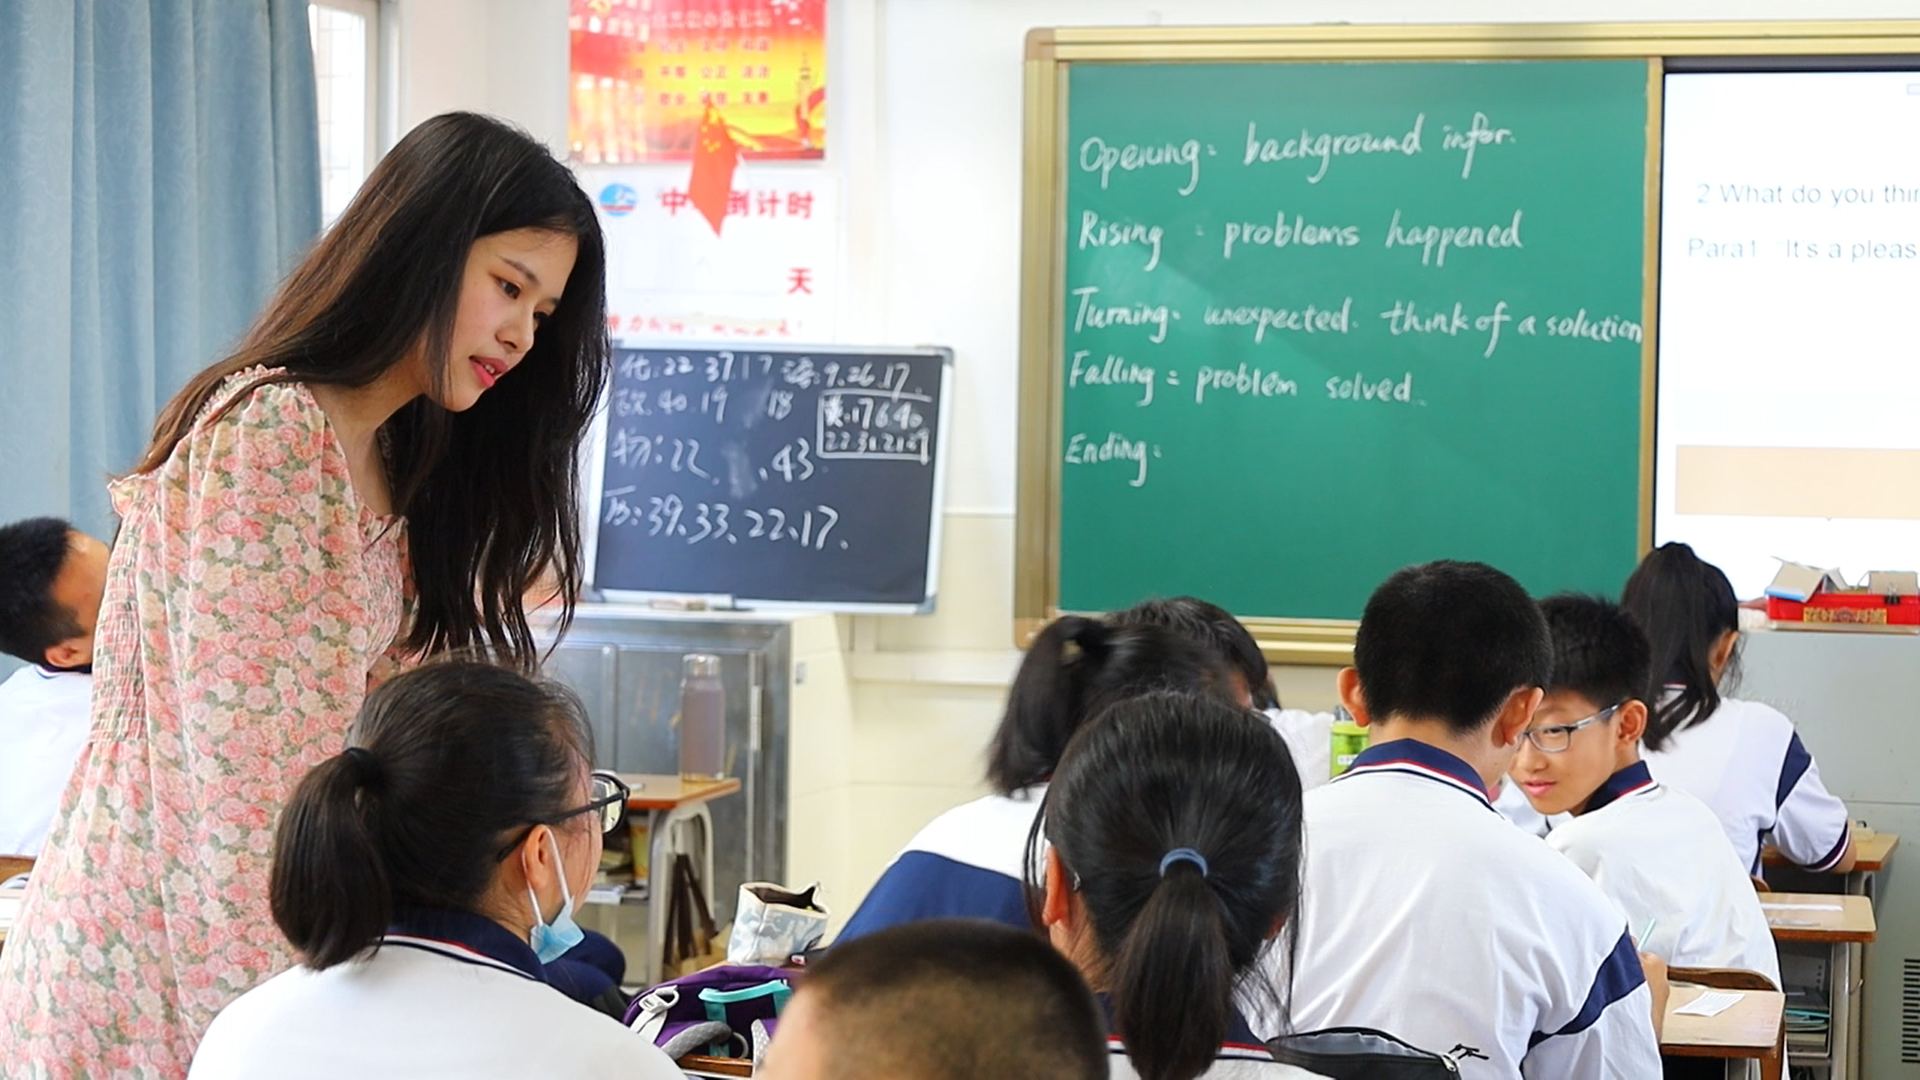 平等 公正 法治
敬业 诚信 友善
中 倒计时
天
化:22 37.17 语:9.26.17.
40.19 18
英.17 6.40
物:22、 、43
22.31.21.29
历:39、33、22、17、
Opening: background infor.
Rising : problems happened
Turning: unexpected. think of a solution
Falling: problem solved.
Ending:
2.What do you thin
Para1 "It's a pleas